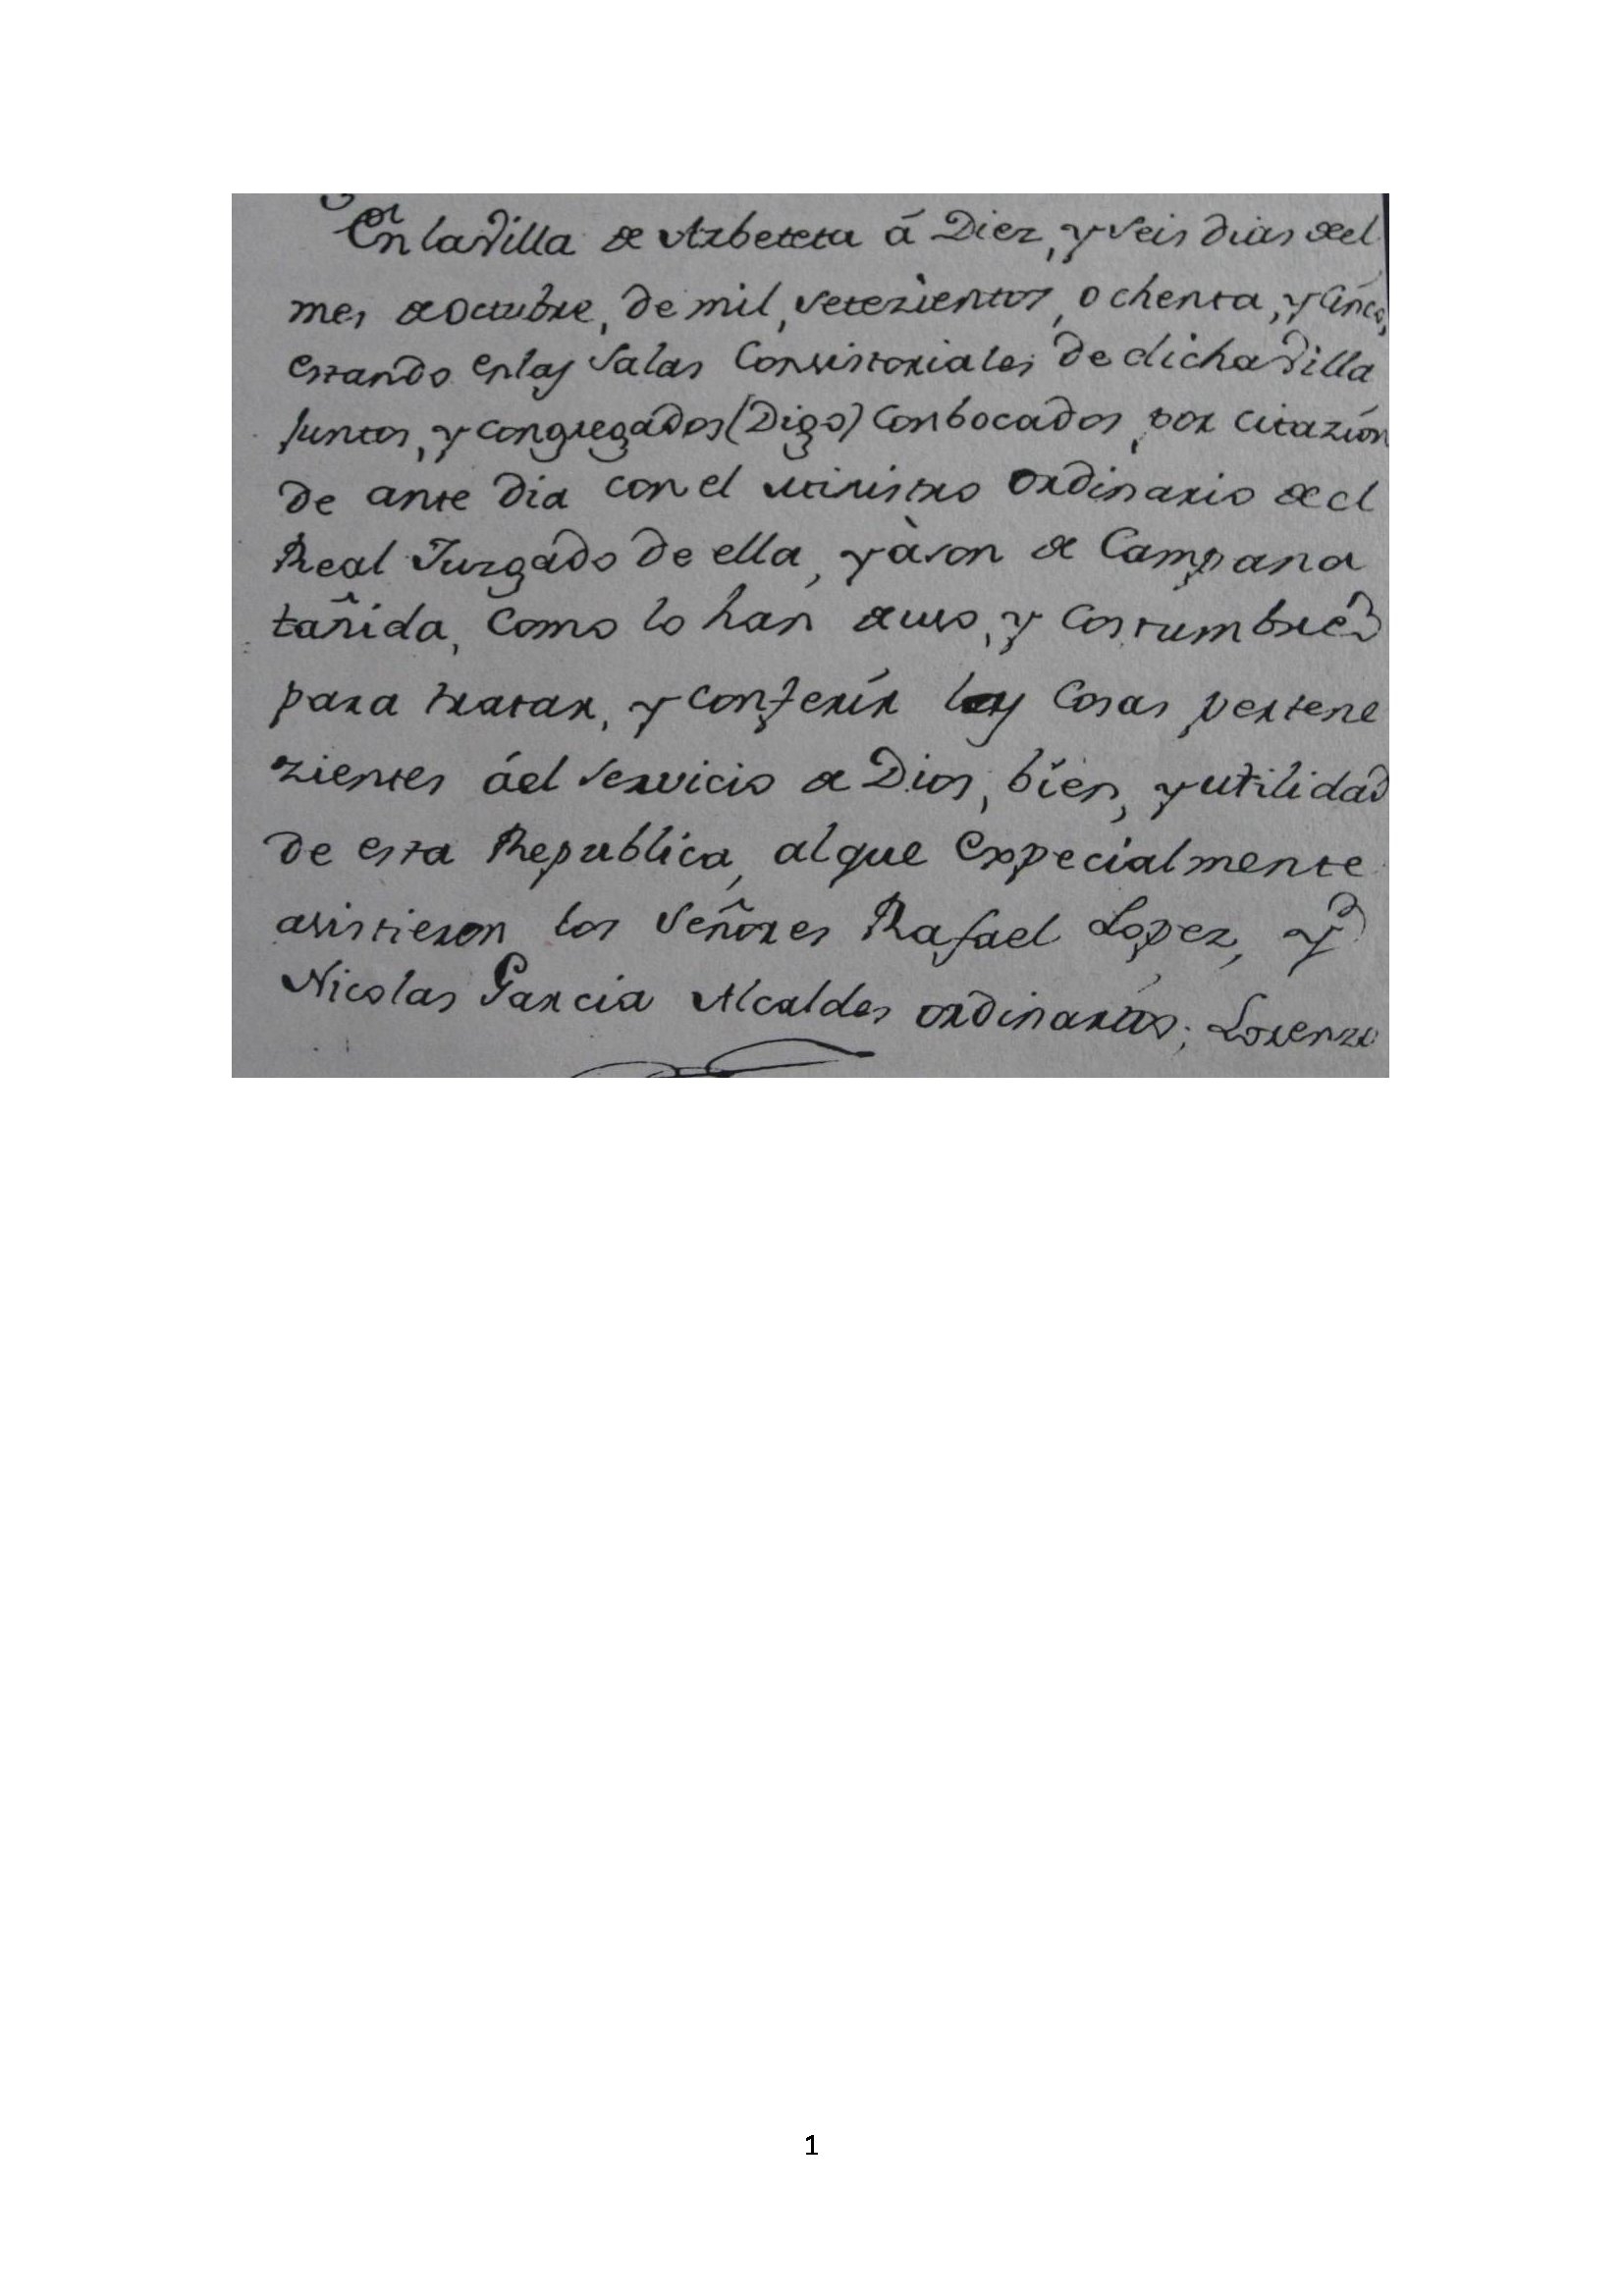 En la Villa de Arbeteta á Diez, y seis dias del
mes de octubre, de mil, setezientos, ochenta, y cinco,
estando en las Salas Consistoriales de dicha Villa
Juntos, y congregados (Digo) Conbocados por citazión
de ante dia con el Ministro ordinario del
Real Juzgado de ella, y à son de Campana
tañida, como lo han de uso, y costumbre
para tratar, y conferír las Cosas pertene
zientes áel servicio de Dios, bien, y utilidad
de esta Republica, al que expecialmente
asistieron los Señores Rafael Lopez, y
Nicolas Garcia Alcaldes ordinarios; Lorenzo
1